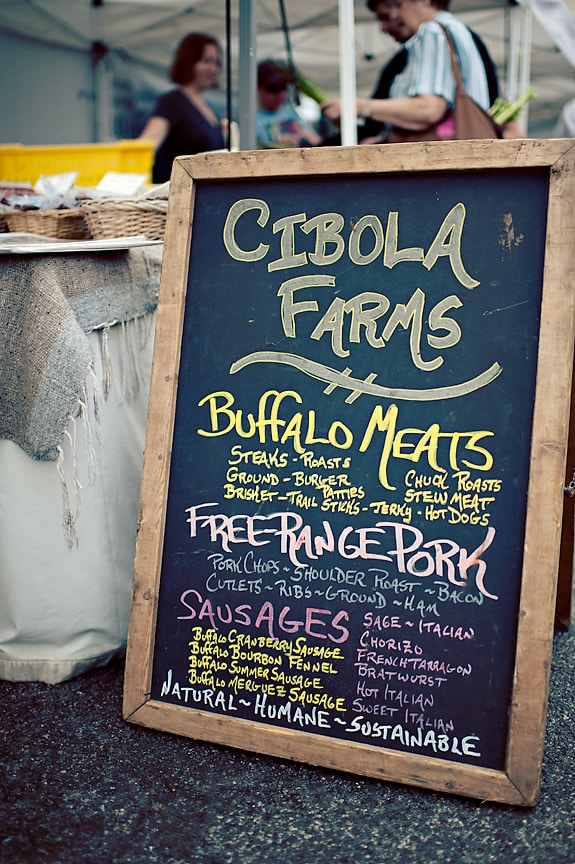 CIBOLA
FARMS
BUFFALO MEATS
STEAKS - ROASTS
GROUND - BURGER PATTIES
CHUCK ROASTS
STEW MEAT
BRISKET - TRAIL STICKS - JERKY - HOT DOGS
FREE-RANGE PORK
PORK CHOPS ~ SHOULDER ROAST ~ BACON
CUTLETS ~ RIBS ~ GROUND ~ HAM
SAUSAGES
BUFFALO CRANBERRY SAUSAGE
BUFFALO BOURBON FENNEL
BUFFALO SUMMER SAUSAGE
BUFFALO MERGUEZ SAUSAGE
SAGE ~ ITALIAN
CHORIZO
FRENCH TARRAGON
BRATWURST
HOT ITALIAN
SWEET ITALIAN
NATURAL ~ HUMANE ~ SUSTAINABLE